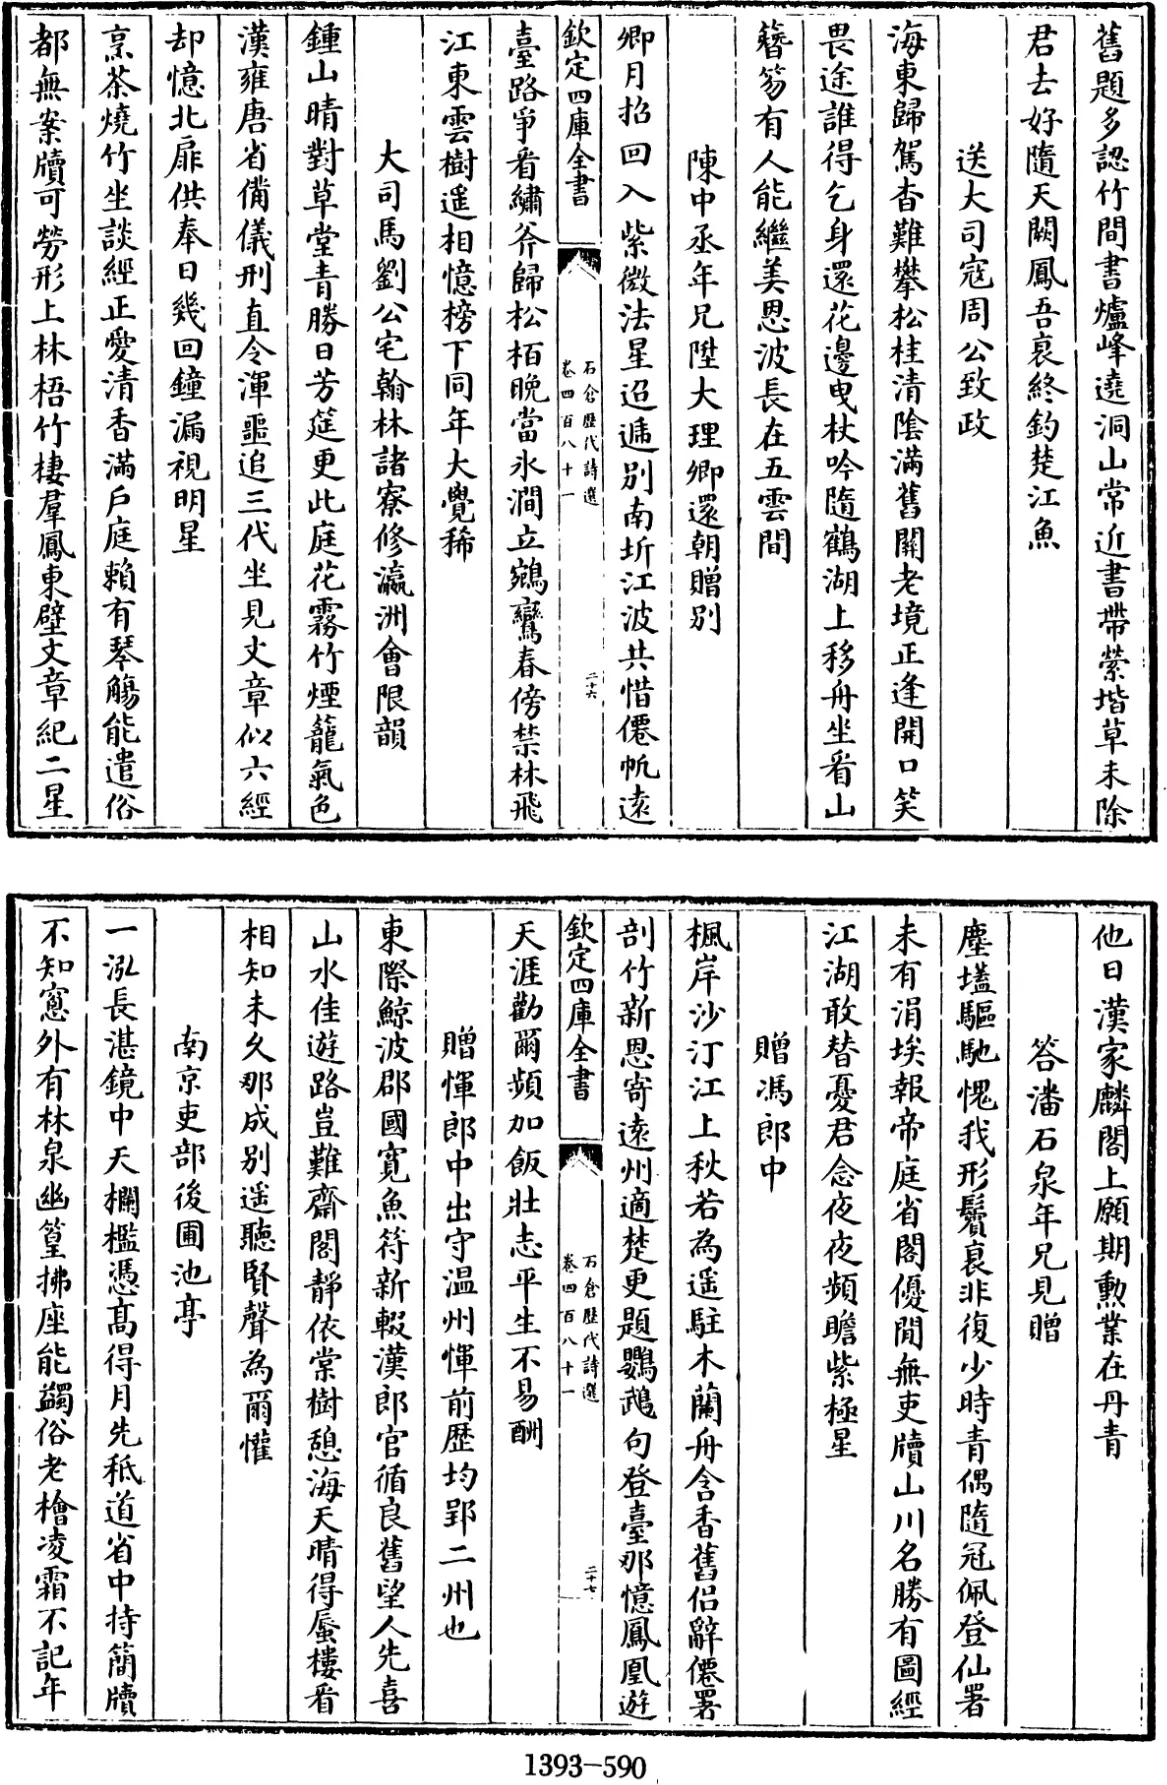 舊題多認竹間書爐峰遶洞山常近書帶縈堦草未除
君去好隨天闕鳳吾衰終釣楚江魚
送大司寇周公致政
海東歸駕杳難攀松桂清陰滿舊關老境正逢開口笑
畏途誰得乞身還花邊曳杖吟隨鶴湖上移舟坐看山
簪笏有人能繼美恩波長在五雲間
陳中丞年兄陞大理卿還朝贈別
卿月招回入紫微法星迢遞別南圻江波共惜僊帆遠
欽定四庫全書
石倉歷代詩選
卷四百八十一
二十六
臺路爭看繡斧歸松栢晚當氷澗立鵷鸞春傍禁林飛
江東雲樹遥相憶榜下同年大覺稀
大司馬劉公宅翰林諸寮修瀛洲會限韻
鍾山晴對草堂青勝日芳筵更此庭花霧竹煙籠氣色
漢雍唐省備儀刑直令渾噩追三代坐見文章似六經
却憶北扉供奉日幾回鐘漏視明星
烹茶燒竹坐談經正愛清香滿戶庭賴有琴觴能遣俗
都無案牘可勞形上林梧竹棲羣鳳東壁文章紀二星
他日漢家麟閣上願期勲業在丹青
答潘石泉年兄見贈
塵壒驅馳愧我形鬢裒非復少時青偶隨冠佩登仙署
未有涓埃報帝庭省閣優閒無吏牘山川名勝有圖經
江湖敢替憂君念夜夜頻瞻紫極星
贈馮郎中
楓岸沙汀江上秋若為遥駐木蘭舟含香舊侶辭僊署
剖竹新恩寄遠州適楚更題鸚鵡句登臺那憶鳳凰遊
欽定四庫全書
石倉歷代詩選
卷四百八十一
二十七
天涯勸爾頻加飯壯志平生不易酬
贈惲郎中出守温州惲前歴均郢二州也
東際鯨波郡國寛魚符新輟漢郎官循良舊望人先喜
山水佳遊路豈難齋閣靜依棠樹憩海天晴得蜃樓看
相知未久那成別遥聽賢聲為爾懽
南京吏部後圃池亭
一泓長湛鏡中天欄檻憑髙得月先秪道省中持簡牘
不知窻外有林泉幽篁拂座能蠲俗老檜凌霜不記年
1393-590